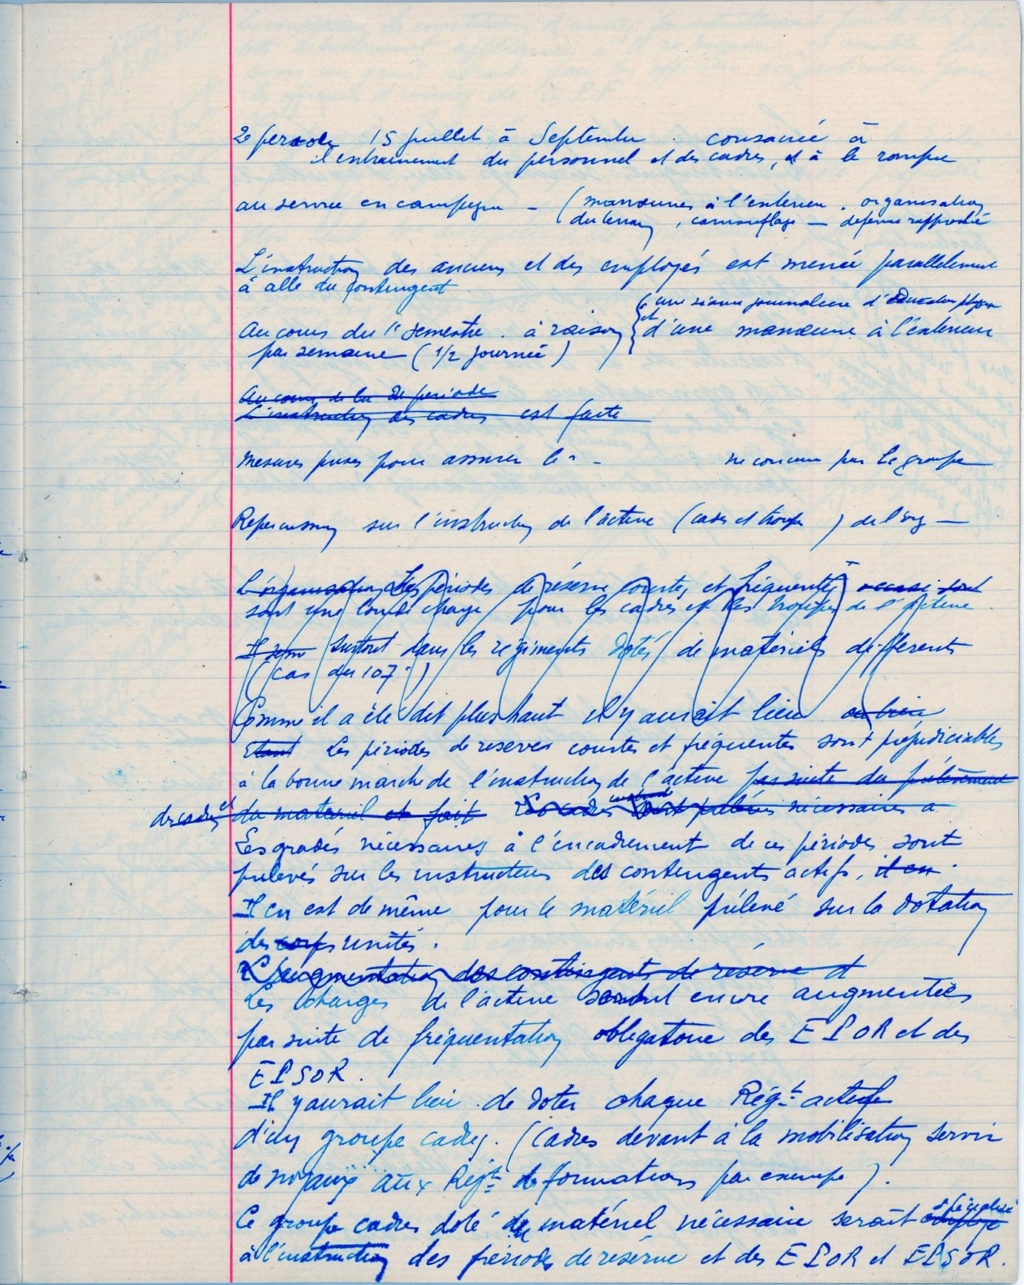 2e période 15 juillet à Septembre consacrée à
l'entrainement du personnel et des cadres, et à le rompre
au service en campagne — (manœuvres à l'extérieur. organisation
du terrain, camouflage — défense rapprochée
L'instruction des anciens et des employés est menée parallèlement
à celle du contingent.
Au cours du 1er Semestre. à raison { une séance journalière d'éducation phys
et d'une manœuvre à l'extérieur
par semaine (1/2 journée)
Au cours de la 2e période
L'instruction des cadres est faite
mesures prises pour assurer l' - ne concerne pas le groupe
Répercussion sur l'instruction de l'active (cadres et troupe) de l'org —
L'organisation Les périodes de réserve courtes et fréquentes
sont une lourde charge pour les cadres et les troupes de l'active
surtout dans les régiments dotés de matériels différents
(cas du 107e)
Comme il a été dit plus haut il y aurait lieu ou bien
Étant Les périodes de réserves courtes et fréquentes sont préjudiciables
à la bonne marche de l'instruction de l'active par suite du prélèvement
du matériel et fait Les cadres sont prélevés nécessaires à
Les gradés nécessaires à l'encadrement de ces périodes sont
prélevés sur les instructeurs des contingents actifs, il en
Il en est de même pour le matériel prélevé sur la dotation
des corps unités.
L'augmentation des contingents de réserve et
Les charges de l'active sont encore augmentées
par suite de fréquentation obligatoire des E L O R et des
E L S O R.
Il y aurait lieu de doter chaque Régt actif
d'un groupe cadre. (Cadres devant à la mobilisation servir
de noyaux aux Régts de formation par exemple).
Ce groupe cadres doté du matériel nécessaire serait spécialisé
à l'instruction des périodes de réserve et des E L O R et E L S O R.